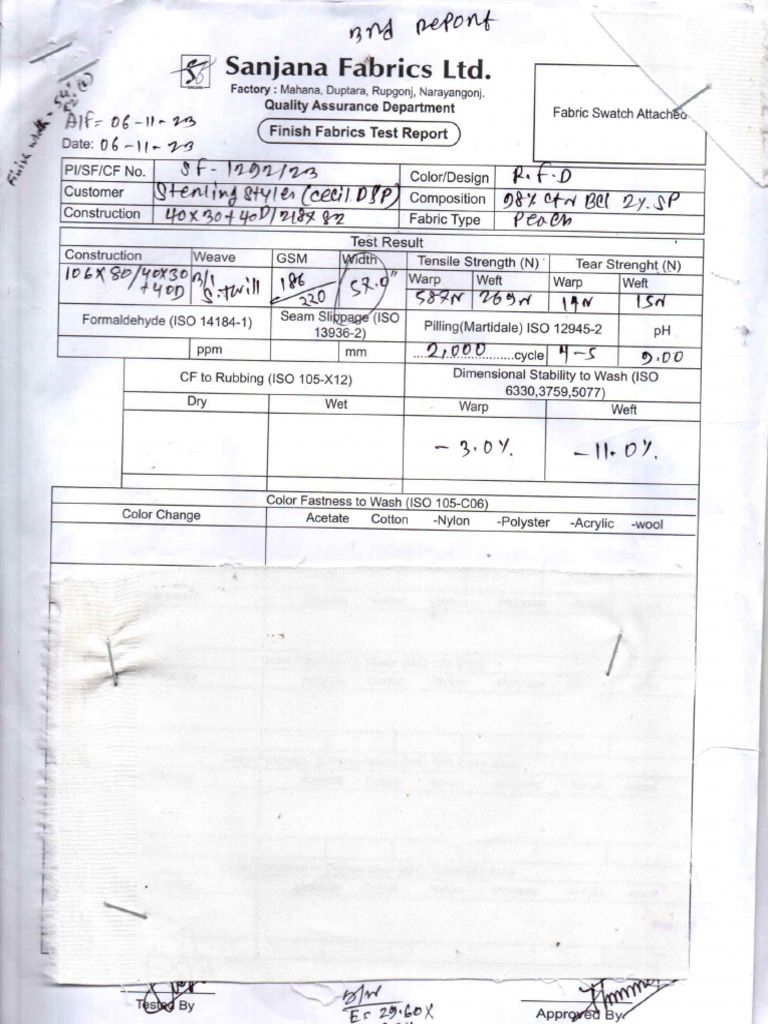 2nd Report
Sanjana Fabrics Ltd.
Factory : Mahana, Duptara, Rupgonj, Narayangonj.
Quality Assurance Department
Finish Fabrics Test Report
Fabric Swatch Attached
Finish width =
A/F= 06-11-23
Date: 06-11-23
PI/SF/CF No. SF-1292/23 Color/Design R.F.D
Customer Sterling Styles (CECIL DSP) Composition 98% CTN BCI 2% SP
Construction 40x30+40D/218x82 Fabric Type Peach
Test Result
Construction Weave GSM Width Tensile Strength (N) Tear Strenght (N)
Warp Weft Warp Weft
106x80/40x30+40D 3/1 S.twill 186/220 57.0" 587N 269N 19N 15N
Formaldehyde (ISO 14184-1) Seam Slippage (ISO 13936-2) Pilling(Martidale) ISO 12945-2 pH
ppm mm 2,000 cycle 4-5 9.00
CF to Rubbing (ISO 105-X12) Dimensional Stability to Wash (ISO 6330,3759,5077)
Dry Wet Warp Weft
-3.0% -11.0%
Color Fastness to Wash (ISO 105-C06)
Color Change Acetate Cotton -Nylon -Polyster -Acrylic -wool
Tested By B/W Approved By:
E= 29.60%